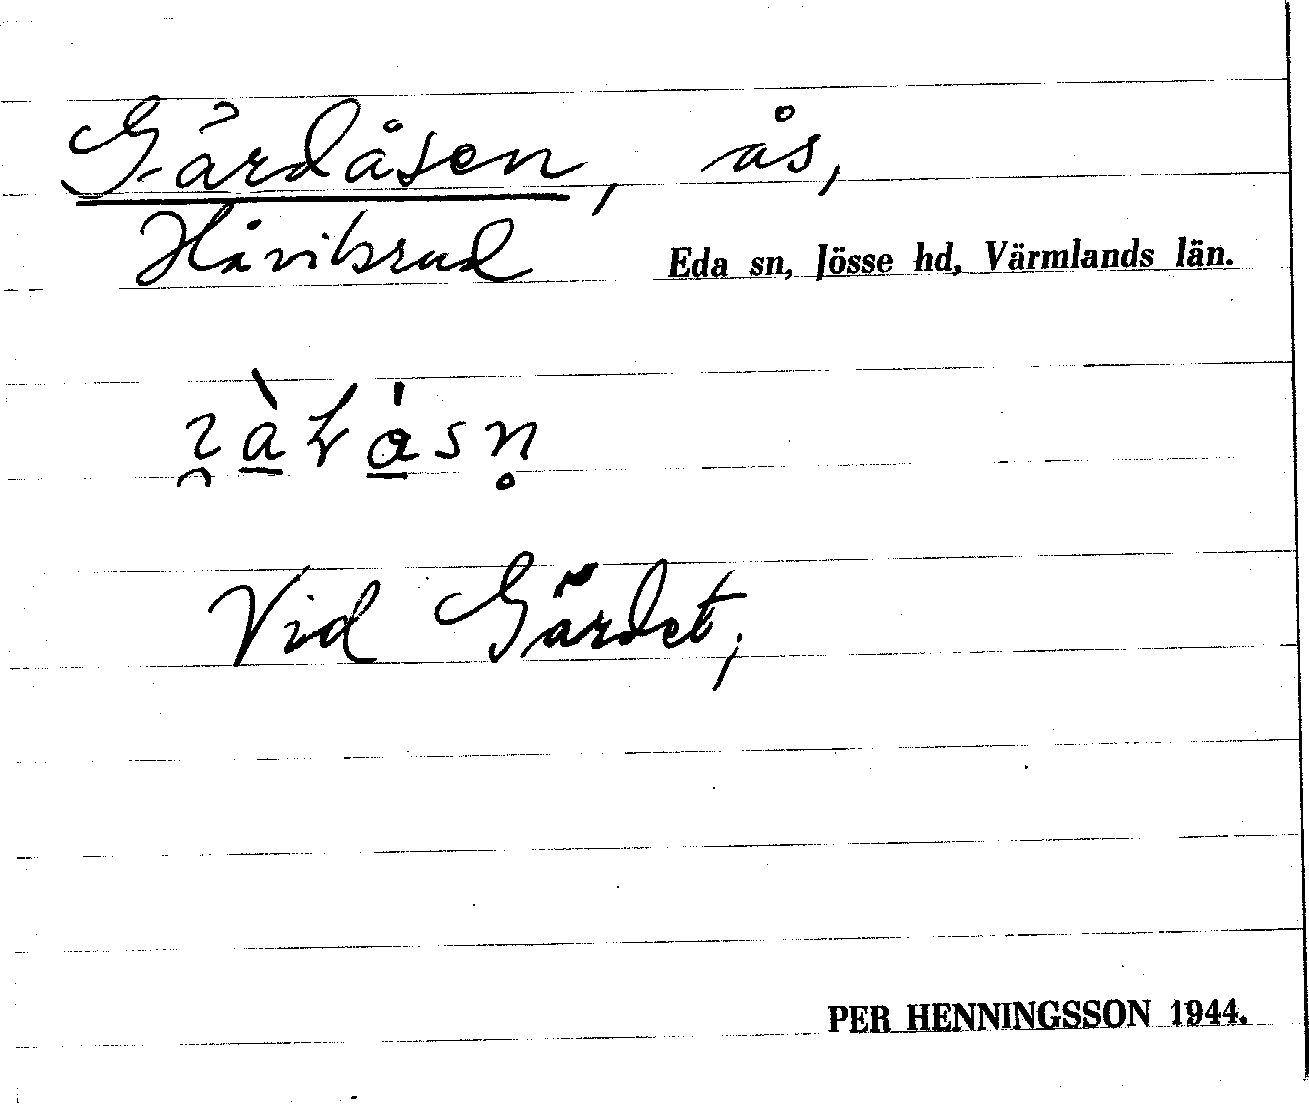 Gärdåsen, ås,
Håvilsrud Eda sn, Jösse hd, Värmlands län.
Vid Gärdet,
PER HENNINGSSON 1944.